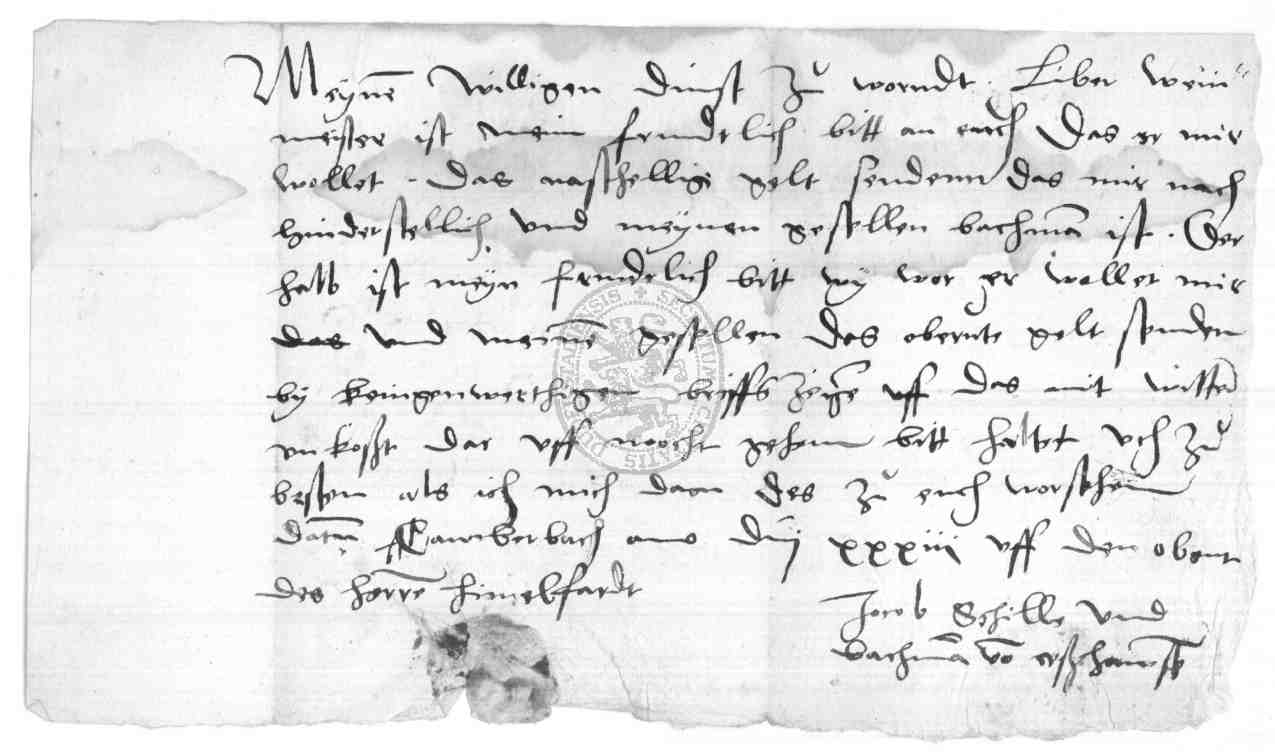 Meynē willigen dinst zů vorndt. Liber wein
meister ist mein frundtlich bitt an euch Das er mir
wollet. Das naschellige gelt sendenn das mir nach
hinderstellich und meynen gesellen bachmā ist. Der
halb ist meyn frundtlich bitt wy vor er wollet mir
das und meinē gesellen das obernte gelt senden
by keingenwerthigen briffs zeigē uff das mit witterē
unkosst dar uff nocht gehenn bitt haltet uch zů
besten als ich mich dan des zů euch vorsehenn
datū Lauwberbach ano dnj xxxiii uff den obent
des herrē himelfardt
Jocob Schille und
bachmā vō